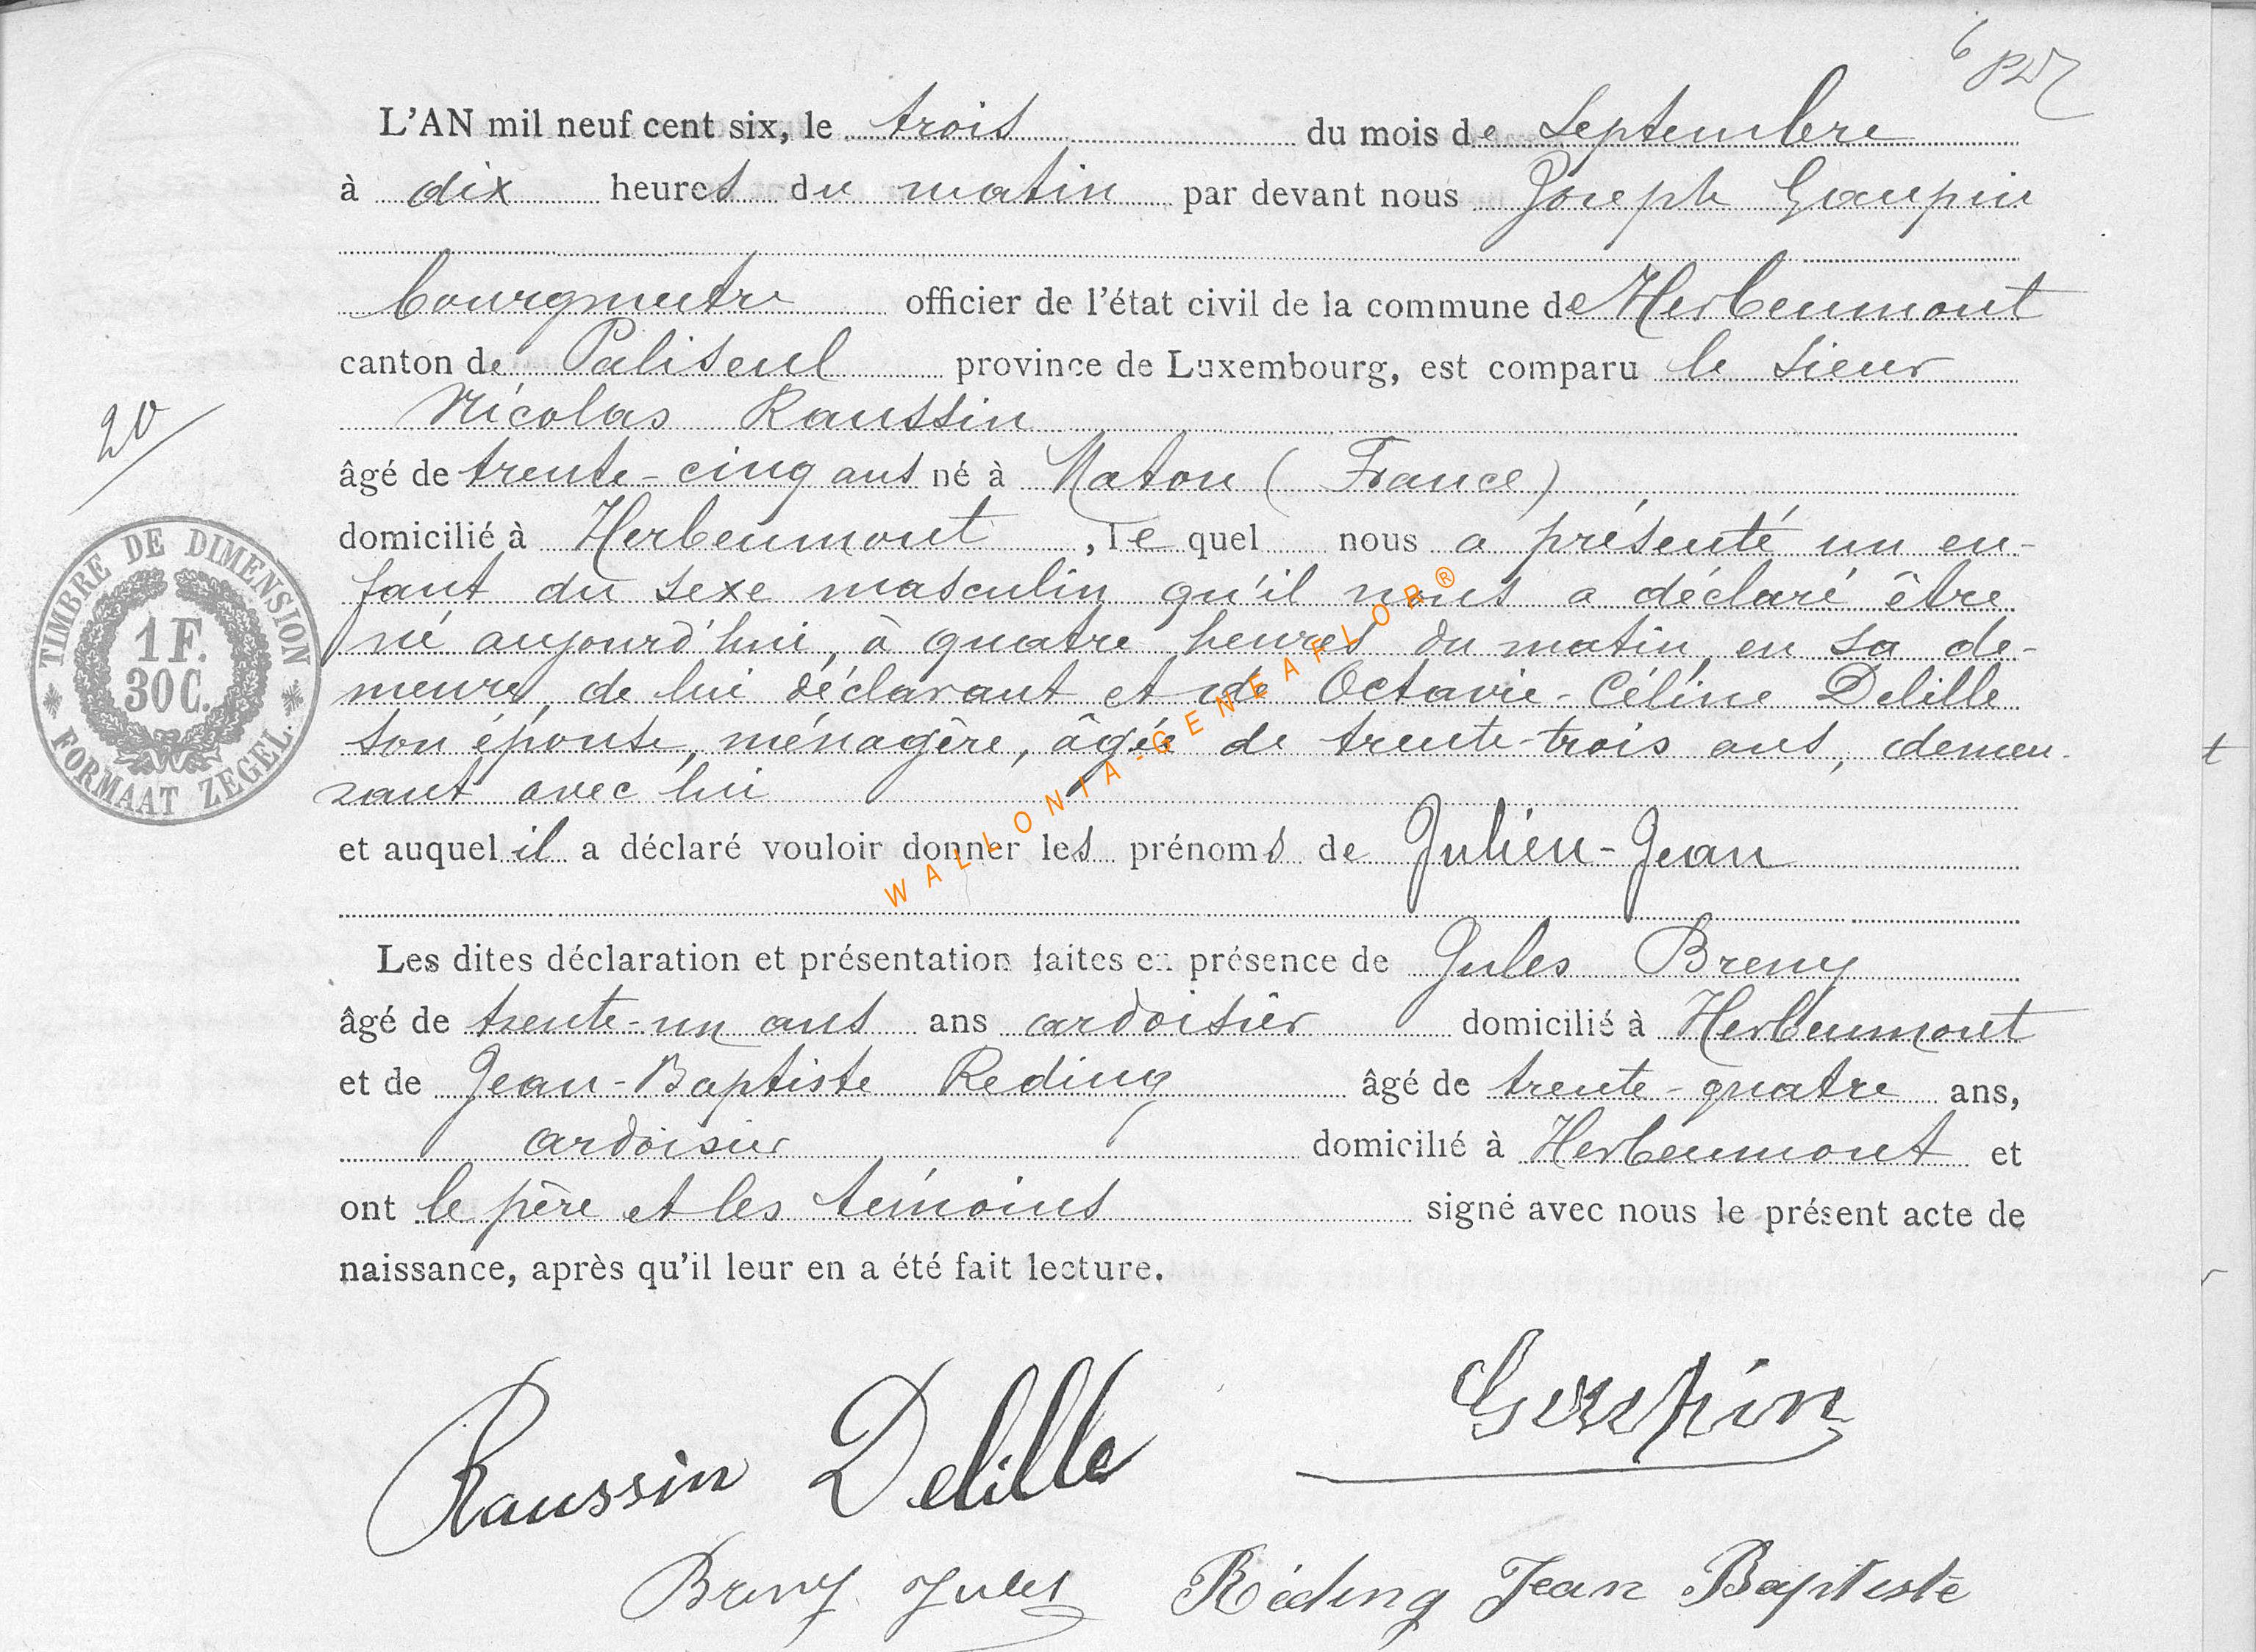 6
L'AN mil neuf cent six, le trois du mois de Septembre
à dix heures du matin par devant nous Joseph Gaupin
bourgmestre officier de l'état civil de la commune de Herbeumont
canton de Paliseul province de Luxembourg, est comparu le sieur
Nicolas Raussin
20
âgé de trente-cinq ans né à Maton (France)
domicilié à Herbeumont, le quel nous a présenté un en-
fant du sexe masculin qu'il nous a déclaré être
né aujourd'hui, à quatre heures du matin, en sa de-
meure, de lui déclarant et de Octavie-Céline Delille
son épouse, ménagère, âgée de trente-trois ans, demeu-
rant avec lui
et auquel il a déclaré vouloir donner les prénoms de Julien-Jean
Les dites déclaration et présentation faites en présence de Jules Breny
âgé de trente-un ans ans ardoisier domicilié à Herbeumont
et de Jean-Baptiste Reding âgé de trente-quatre ans,
ardoisier domicilié à Herbeumont et
ont le père et les témoins signé avec nous le présent acte de
naissance, après qu'il leur en a été fait lecture.
TIMBRE DE DIMENSION
1 F.
30 C.
FORMAAT ZEGEL.
WALLONIA-GENEAFLOR®
Raussin Delille
Breny Jules Réding Jean Baptiste